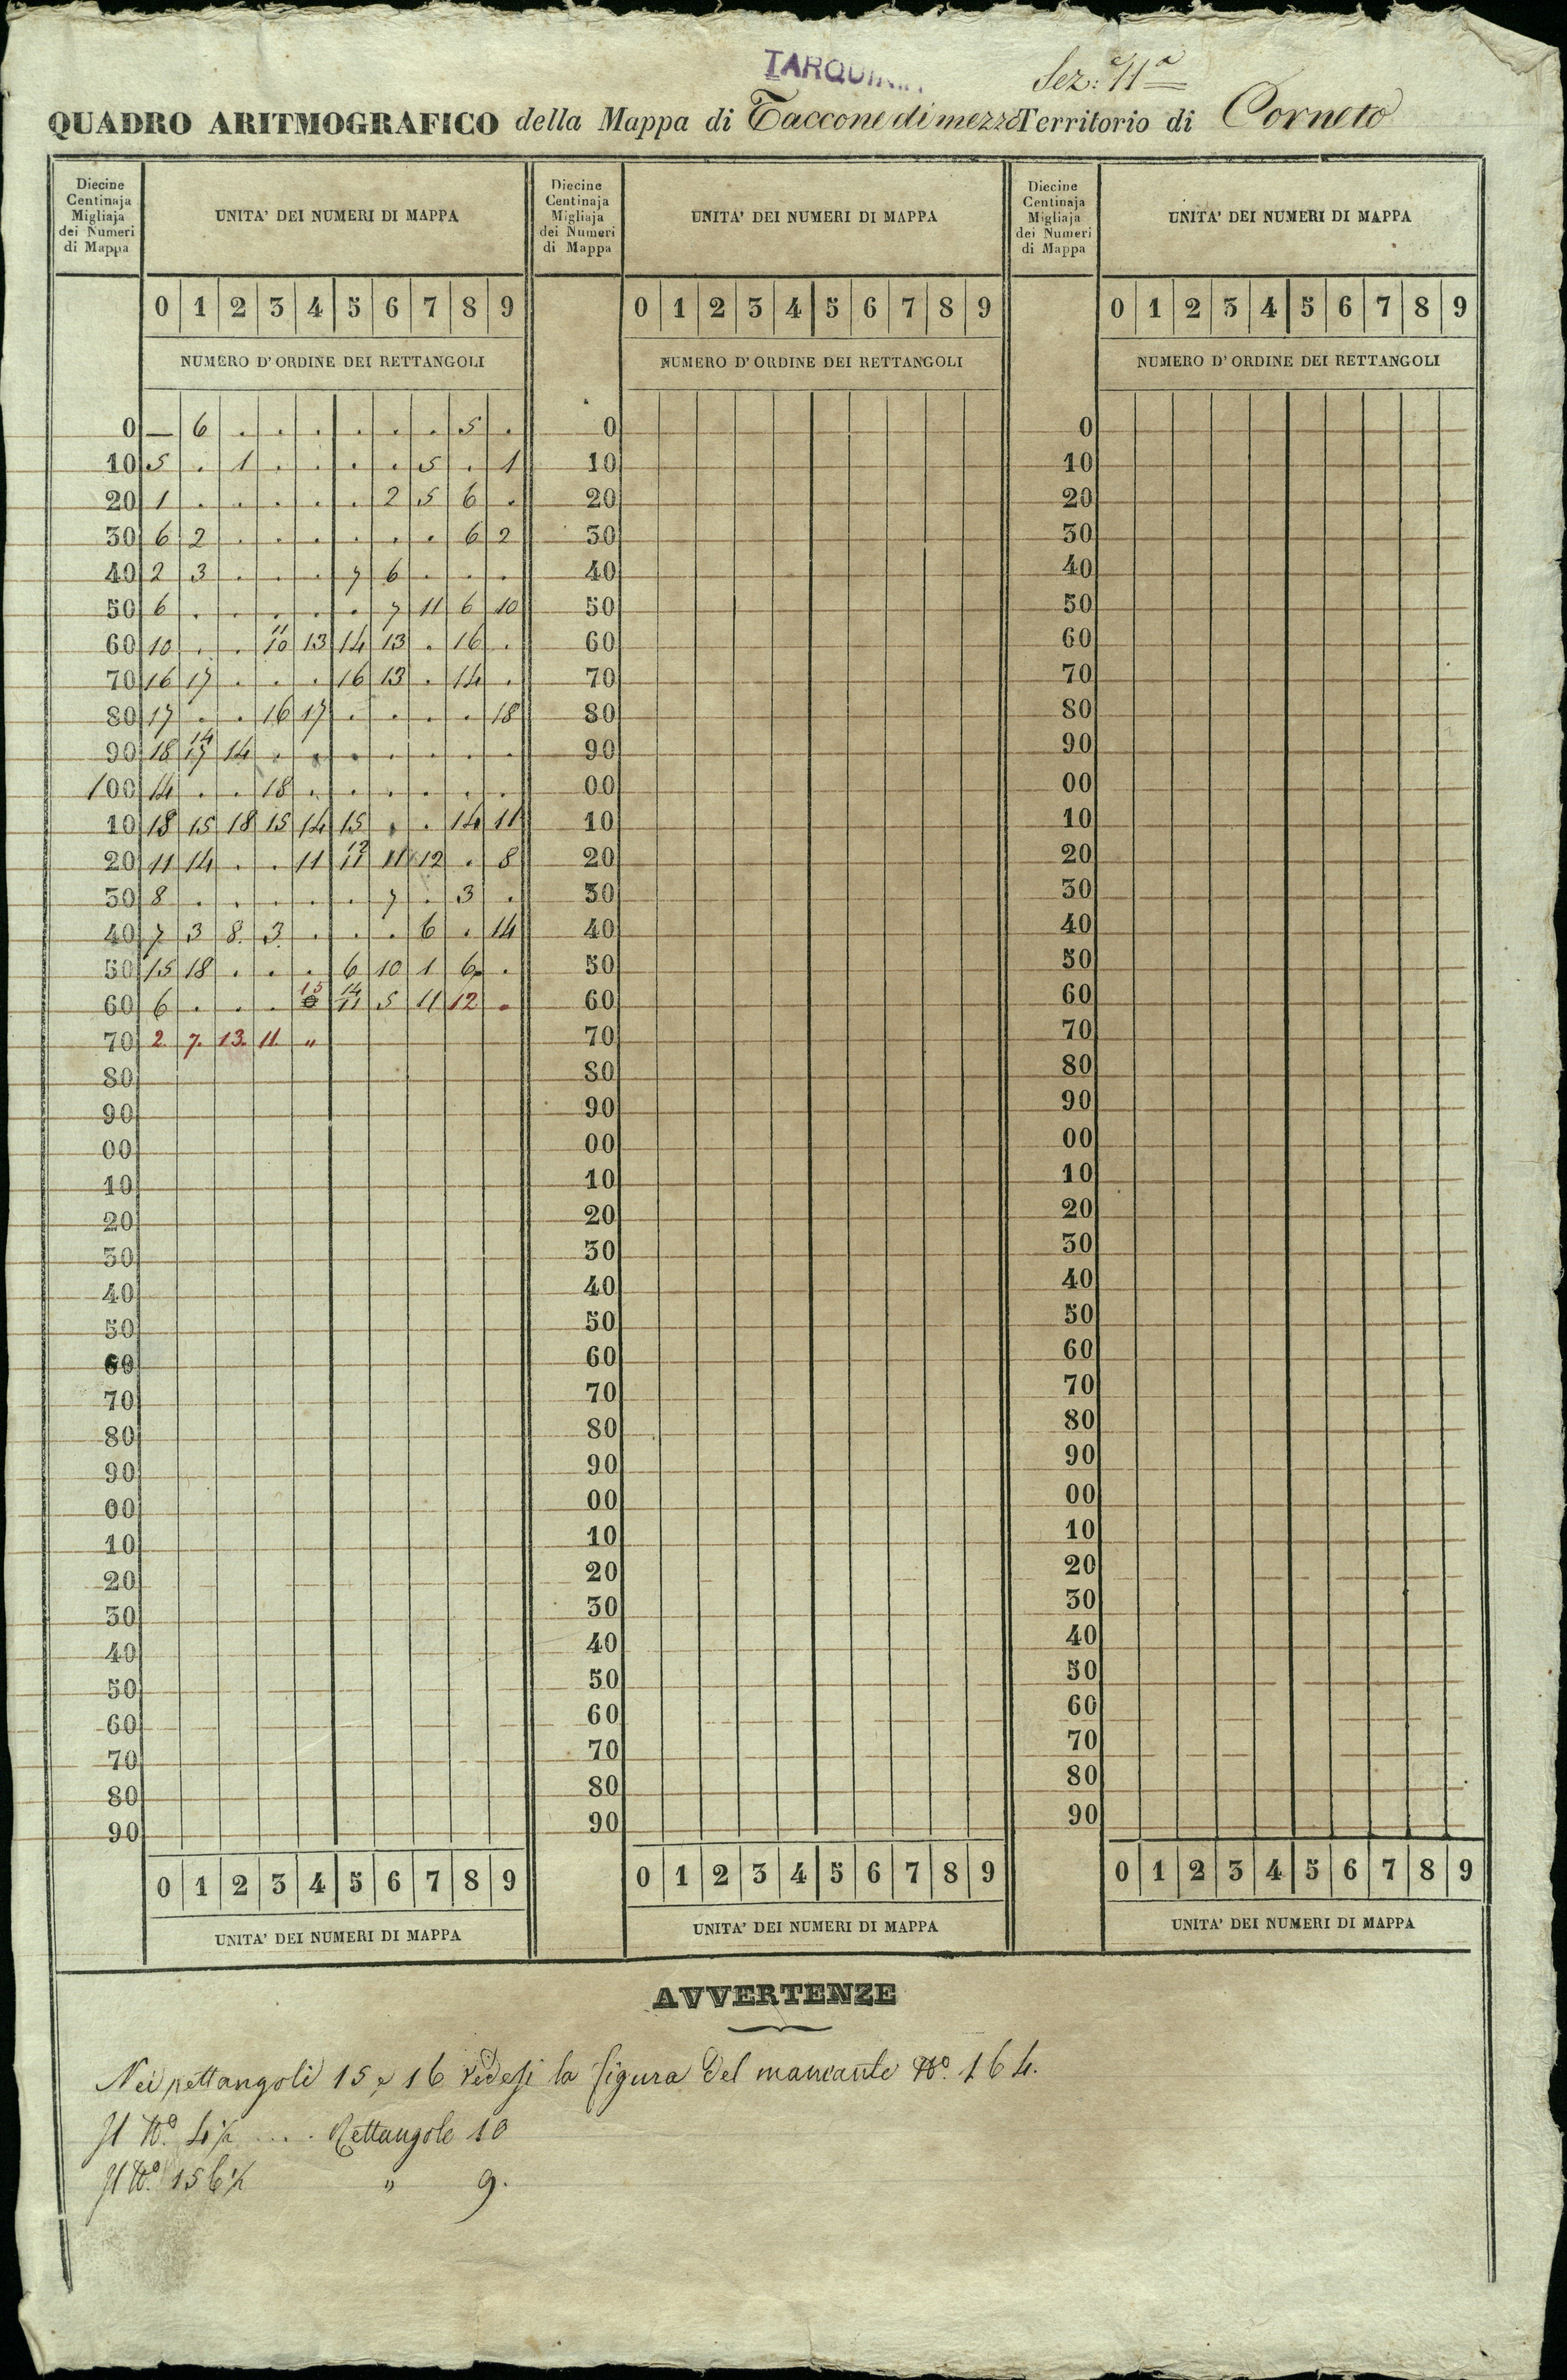 TARQUINIA
Sez: 11ª
QUADRO ARITMOGRAFICO della Mappa di Taccone di mezzo Territorio di Corneto
Diecine Centinaja Migliaja dei Numeri di Mappa | UNITA' DEI NUMERI DI MAPPA | Diecine Centinaja Migliaja dei Numeri di Mappa | UNITA' DEI NUMERI DI MAPPA | Diecine Centinaja Migliaja dei Numeri di Mappa | UNITA' DEI NUMERI DI MAPPA
0 1 2 3 4 5 6 7 8 9 | 0 1 2 3 4 5 6 7 8 9 | 0 1 2 3 4 5 6 7 8 9
NUMERO D'ORDINE DEI RETTANGOLI | NUMERO D'ORDINE DEI RETTANGOLI | NUMERO D'ORDINE DEI RETTANGOLI
0 — 6 . . . . . . 5 . | 0 | 0
10 5 . 1 . . . . 5 . 1 | 10 | 10
20 1 . . . . . 2 5 6 . | 20 | 20
30 6 2 . . . . . . 6 2 | 30 | 30
40 2 3 . . . 7 6 . . . | 40 | 40
50 6 . . . . . 7 11 6 10 | 50 | 50
60 10 . . 11 10 13 14 13 . 16 . | 60 | 60
70 16 17 . . . 16 13 . 14 . | 70 | 70
80 17 . . 16 17 . . . . 18 | 80 | 80
90 18 14 17 14 . . . . . . . | 90 | 90
100 14 . . 18 . . . . . . | 00 | 00
10 18 15 18 15 14 15 . . 14 11 | 10 | 10
20 11 14 . . 11 12 11 11 12 . 8 | 20 | 20
30 8 . . . . . 7 . 3 . | 30 | 30
40 7 3 8. 3. . . . 6 . 14 | 40 | 40
50 15 18 . . . 6 10 1 6 . | 50 | 50
60 6 . . . 15 14 11 5 11 12 . | 60 | 60
70 2. 7. 13. 11. " | 70 | 70
80 | 80 | 80
90 | 90 | 90
00 | 00 | 00
10 | 10 | 10
20 | 20 | 20
30 | 30 | 30
40 | 40 | 40
50 | 50 | 50
60 | 60 | 60
70 | 70 | 70
80 | 80 | 80
90 | 90 | 90
00 | 00 | 00
10 | 10 | 10
20 | 20 | 20
30 | 30 | 30
40 | 40 | 40
50 | 50 | 50
60 | 60 | 60
70 | 70 | 70
80 | 80 | 80
90 | 90 | 90
0 1 2 3 4 5 6 7 8 9 | 0 1 2 3 4 5 6 7 8 9 | 0 1 2 3 4 5 6 7 8 9
UNITA' DEI NUMERI DI MAPPA | UNITA' DEI NUMERI DI MAPPA | UNITA' DEI NUMERI DI MAPPA
AVVERTENZE
Nei rettangoli 15 e 16 vedesi la figura del mancante Nº. 164.
Il Nº. .... Rettangolo 10
Il Nº. 156½ " 9.